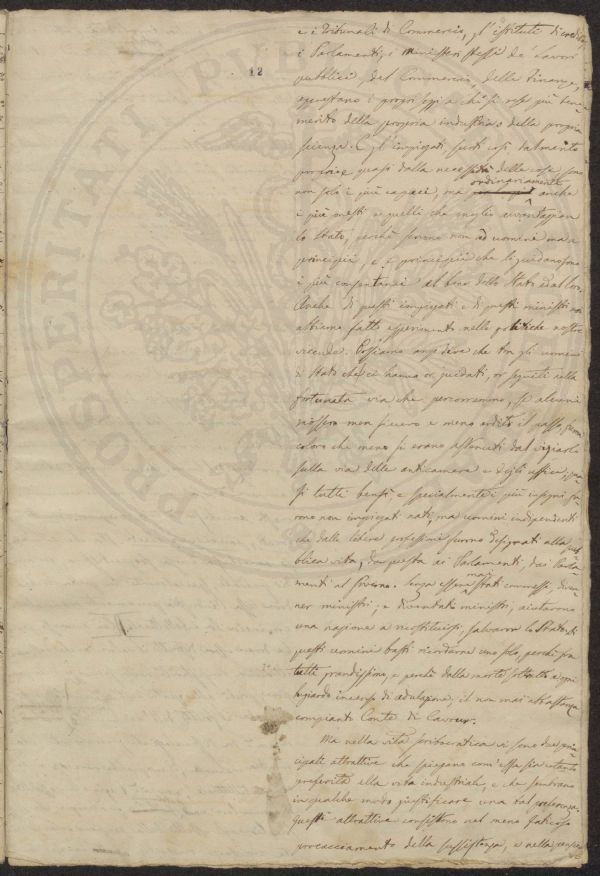 12
e i Tribunali di Commercio, gl'istituti di credito,
i Parlamenti, i Ministeri stessi de' Lavori
pubblici, del Commercio, delle Finanze,
apprestano i propri seggi a chi si rese più bene
merito della propria industria o della propria
scienza. E gl'impiegati sorti così talmente
provini e quasi dalla necessità delle cose sono
non solo i più capaci, ma ordinariamente anche
i più onesti e quelli che meglio avvantaggian
lo Stato, perchè servono non ad uomini ma a
principii, e i principii che li guidano sono
i più confortanti al bene dello Stato ed al loro.
Anche di questi impiegati e di questi ministri noi
abbiamo fatto esperimento nelle politiche nostre
vicende. Possiamo anzi dire che tra gli uomini
di Stato che ci hanno or guidati, or seguiti nella
fortunata via che percorremmo, se alcuni
mossero men sicuro e meno ardito il passo, furono
coloro che meno si erano
sulla via delle anticamere e degli uffici, qua
si tutti bensì e specialmente i più insigni fu
rono non impiegati nati, ma uomini indipendenti
che dalle libere professioni furono designati alla pub
blica vita, da questa ai Parlamenti, dai Parla
menti al Governo. Senza essere mai stati commessi, diven
ner ministri, e diventati ministri, aiutarono
una nazione a ricostituirsi, salvaron lo Stato. Di
questi uomini basti ricordarne uno solo, perchè fra
tutti grandissimo, e perchè dalla morte sottratto a ogni
bugiardo incenso di adulazione, il non mai abbastanza
compianto Conte di Cavour.
Ma nella vita scribocratica vi sono due prin
cipali attrattive che spiegano com'essa sia cotanto
preferita alla vita industriale, e che sembrano
in qualche modo giustificare una tal preferenza.
Queste attrattive consistono nel meno faticoso
procacciamento della sussistenza, e nella